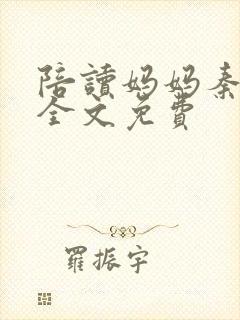 陪讀媽媽秦
全文免費
羅振宇